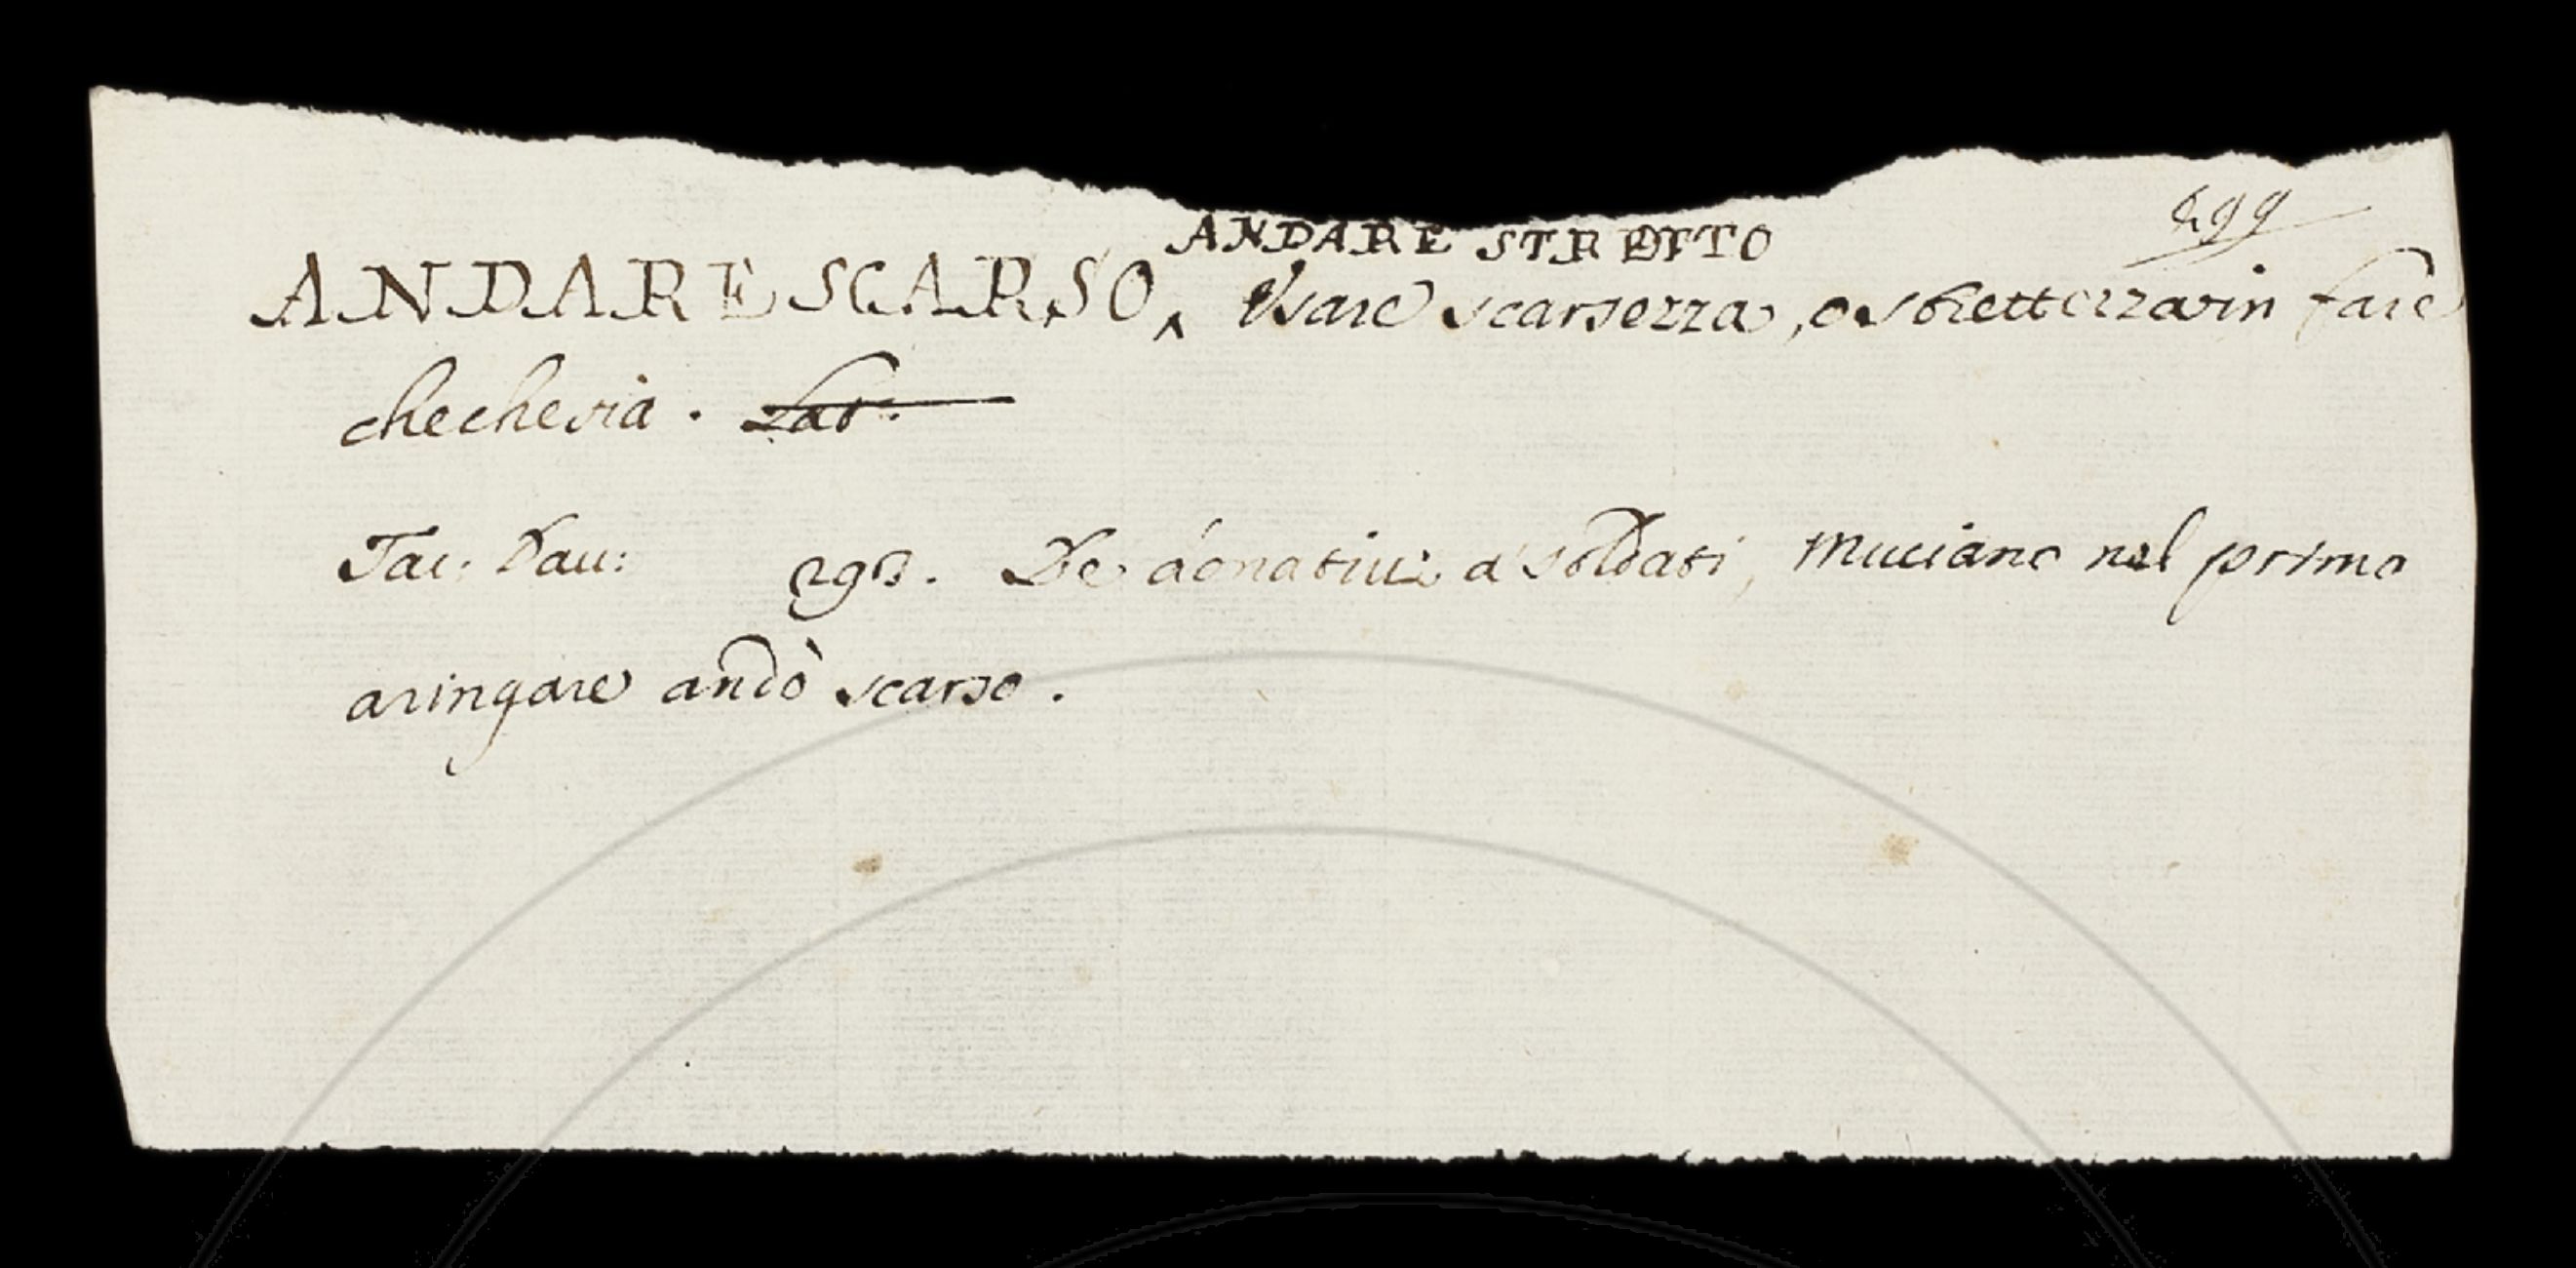 ANDARE STRETTO
ANDARE SCARSO, Usare scarsezza, o strettezza in fare
chechesia. Lat:
Tac: Dau: De donatiui a' soldati, Muciano nel primo
aringare andò scarso.